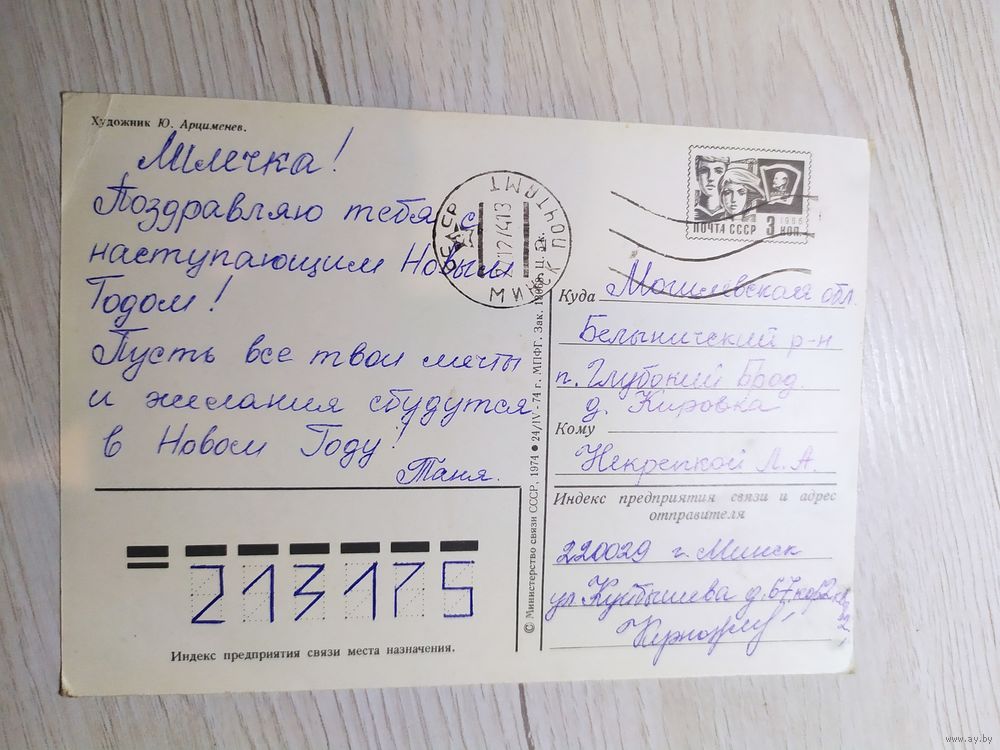 Художник Ю. Арцименев.
Милечка!
Поздравляю тебя с
наступающим Новым
Годом!
Пусть все твои мечты
и желания сбудутся
в Новом Году!
Таня.
213175
Индекс предприятия связи места назначения.
© Министерство связи СССР, 1974 ● 24/IV-74 г. МПФГ. Зак. Ц. 5к.
МИНСК ПОЧТАМТ
ПОЧТА СССР 3 КОП
1966
Куда Могилевская обл.
Белыничский р-н
п. Глубокий Брод
д. Кировка
Кому
Некрепкой Л. А.
Индекс предприятия связи и адрес
отправителя
220029 г. Минск
ул. Куйбышева д. 67
www.ay.by